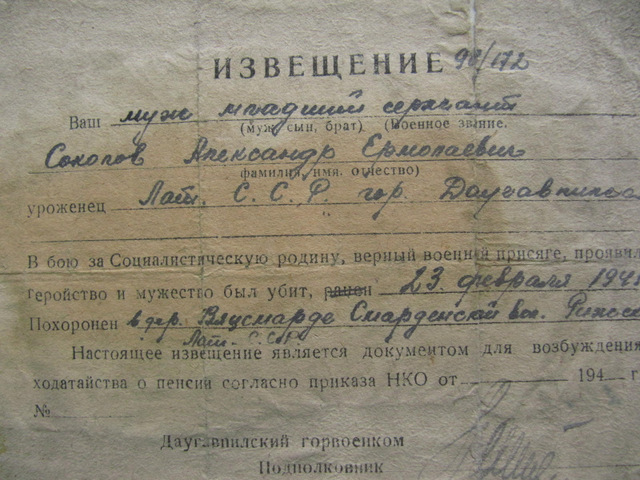 ИЗВЕЩЕНИЕ 98/172
Ваш муж младший сержант
(муж, сын, брат) (Военное звание.
Соколов Александр Ермолаевич
фамилия, имя. отчество)
уроженец Лат. С. С. Р. гор. Даугавпилса
В бою за Социалистическую родину, верный военной присяге, проявил
геройство и мужество был убит, ранен 23 февраля 194
Похоронен в дер. Смарденской вол. Рижско
Лат. С.С.Р.
Настоящее извещение является документом для возбуждения
ходатайства о пенсии согласно приказа НКО от 194 г
№
Даугавпилский горвоенком
Подполковник